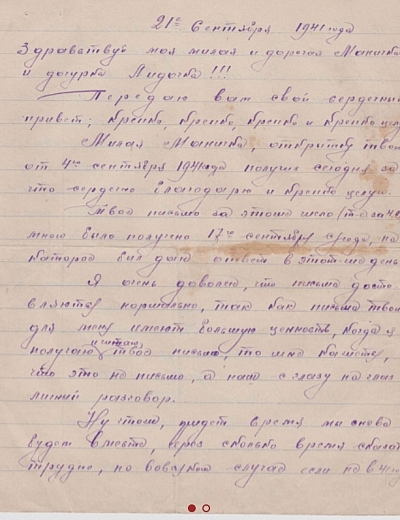 21го Сентября 1941 года
Здравствуй моя милая и дорогая Маничка
и дочурка Лидочка!!!
Передаю вам свой сердечный
привет; крепко, крепко, крепко и крепко целу
Милая Маничка, открытку твою
от 4го сентября 1941года получил сегодня за
что сердечно благодарю и крепко целую.
Твое письмо за этоже число (т-е за 4.
мною было получено 17го сентября среда, на
которой был дан ответ в этот-же день
Я очень доволен, что письма доста-
вляются нормально, так как письма твои
для меня имеют большую ценность, когда я
получаю и читаю твое письмо, то мне кажется,
что это не письмо, а наш с глазу на глаз
личный разговор.
Ну чтож, придет время мы снова
будем вместе, через сколько время сказать
трудно, но во всяком случае если не в